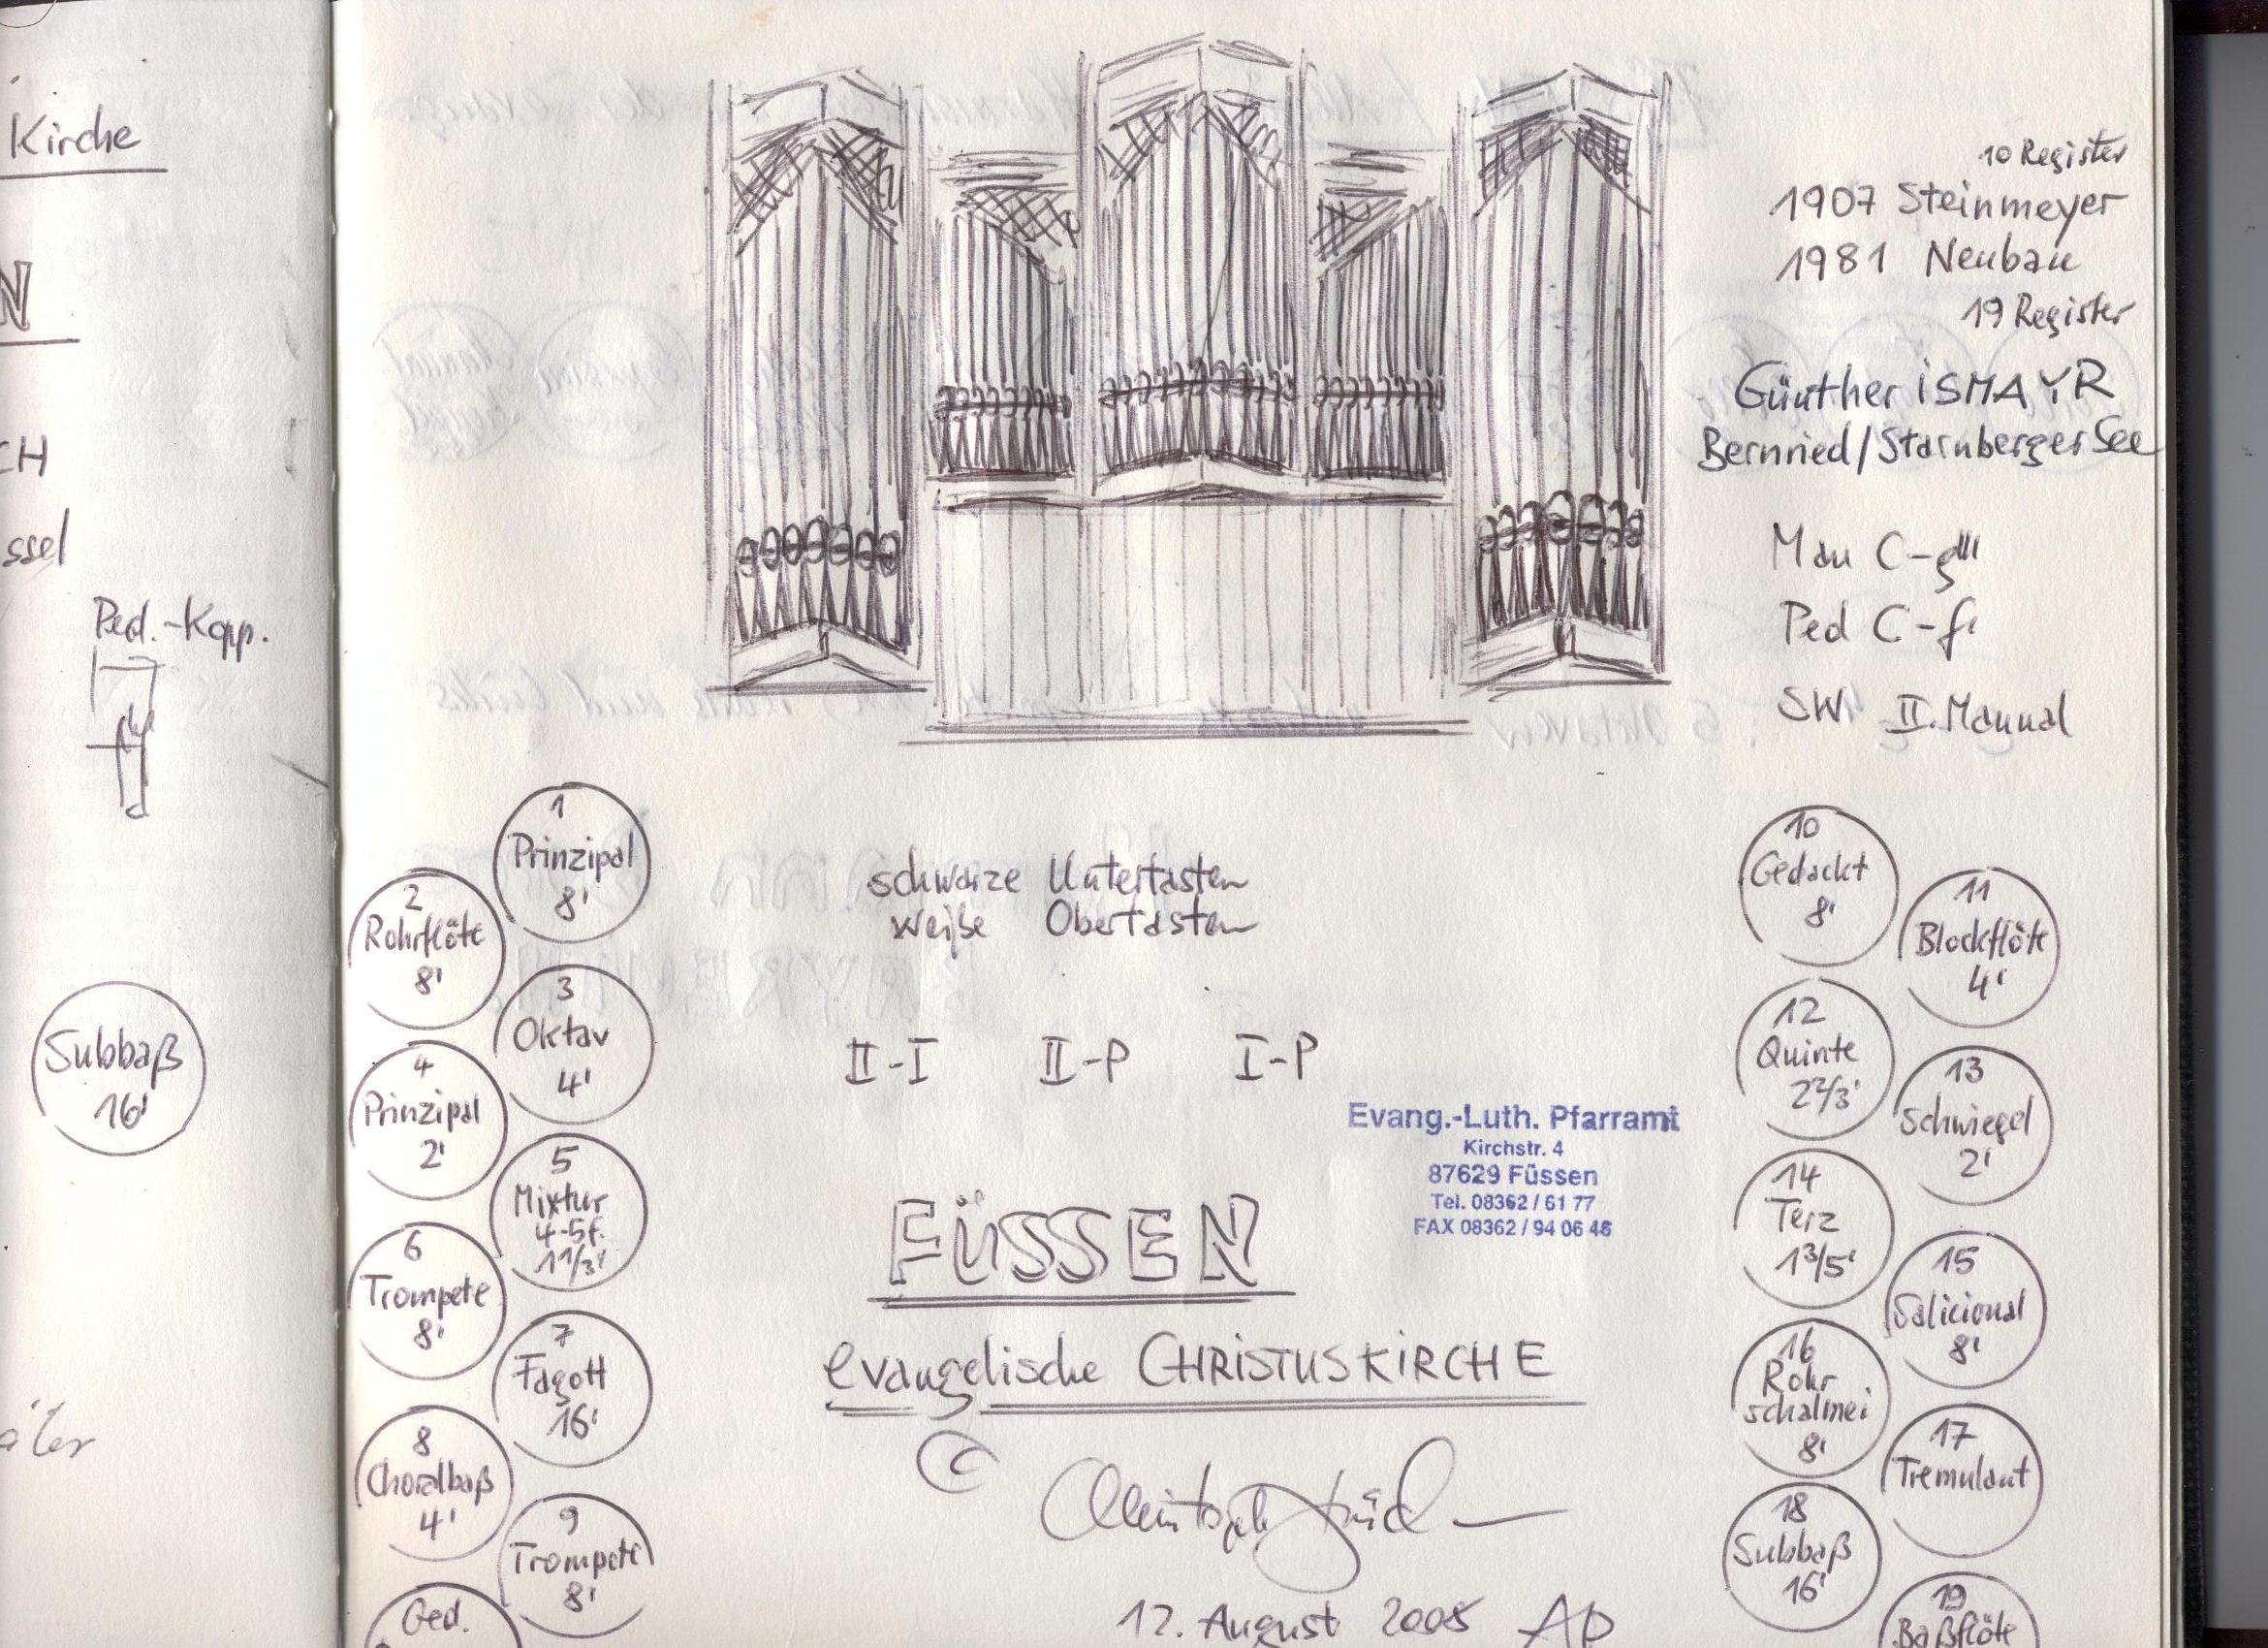 Kirche
N
CH
ssel
Ped.-Kopp.
Subbaß
16'
äter
10 Register
1907 Steinmeyer
1981 Neubau
19 Register
Günther ISMAYR
Bernried/Starnberger See
Man C-g'''
Ped C-f'
SW II. Manual
1
Prinzipal
8'
2
Rohrflöte
8'
3
Oktav
4'
4
Prinzipal
2'
5
Mixtur
4-5f.
1 1/3'
6
Trompete
8'
7
Fagott
16'
8
Choralbaß
4'
9
Trompete
8'
Ged.
schwarze Untertasten
weiße Obertasten
II-I II-P I-P
Evang.-Luth. Pfarramt
Kirchstr. 4
87629 Füssen
Tel. 08362 / 61 77
FAX 08362 / 94 06 46
FÜSSEN
evangelische CHRISTUSKIRCHE
©
12. August 2005
10
Gedackt
8'
11
Blockflöte
4'
12
Quinte
2 2/3'
13
Schwiegel
2'
14
Terz
1 3/5'
15
Salicional
8'
16
Rohr
schalmei
8'
17
Tremulant
18
Subbaß
16'
19
Baßflöte